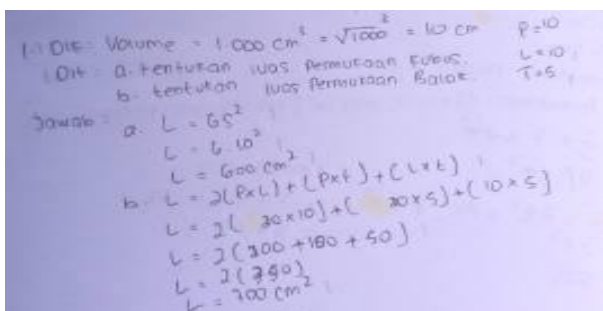 1.) Dik : Volume = 1.000 cm³ = √1000³ = 10 cm P=10
Dit : a. tentukan luas Permukaan kubus. L=10
b. tentukan luas Permukaan Balok T=5
Jawab : a. L = 6s²
L = 6.10²
L = 600 cm²
b. L = 2(PxL) + (Pxt) + (Lxt)
L = 2(20x10) + (20x5) + (10x5)
L = 2( +100 + 50)
L = 2(350)
L = 700 cm²